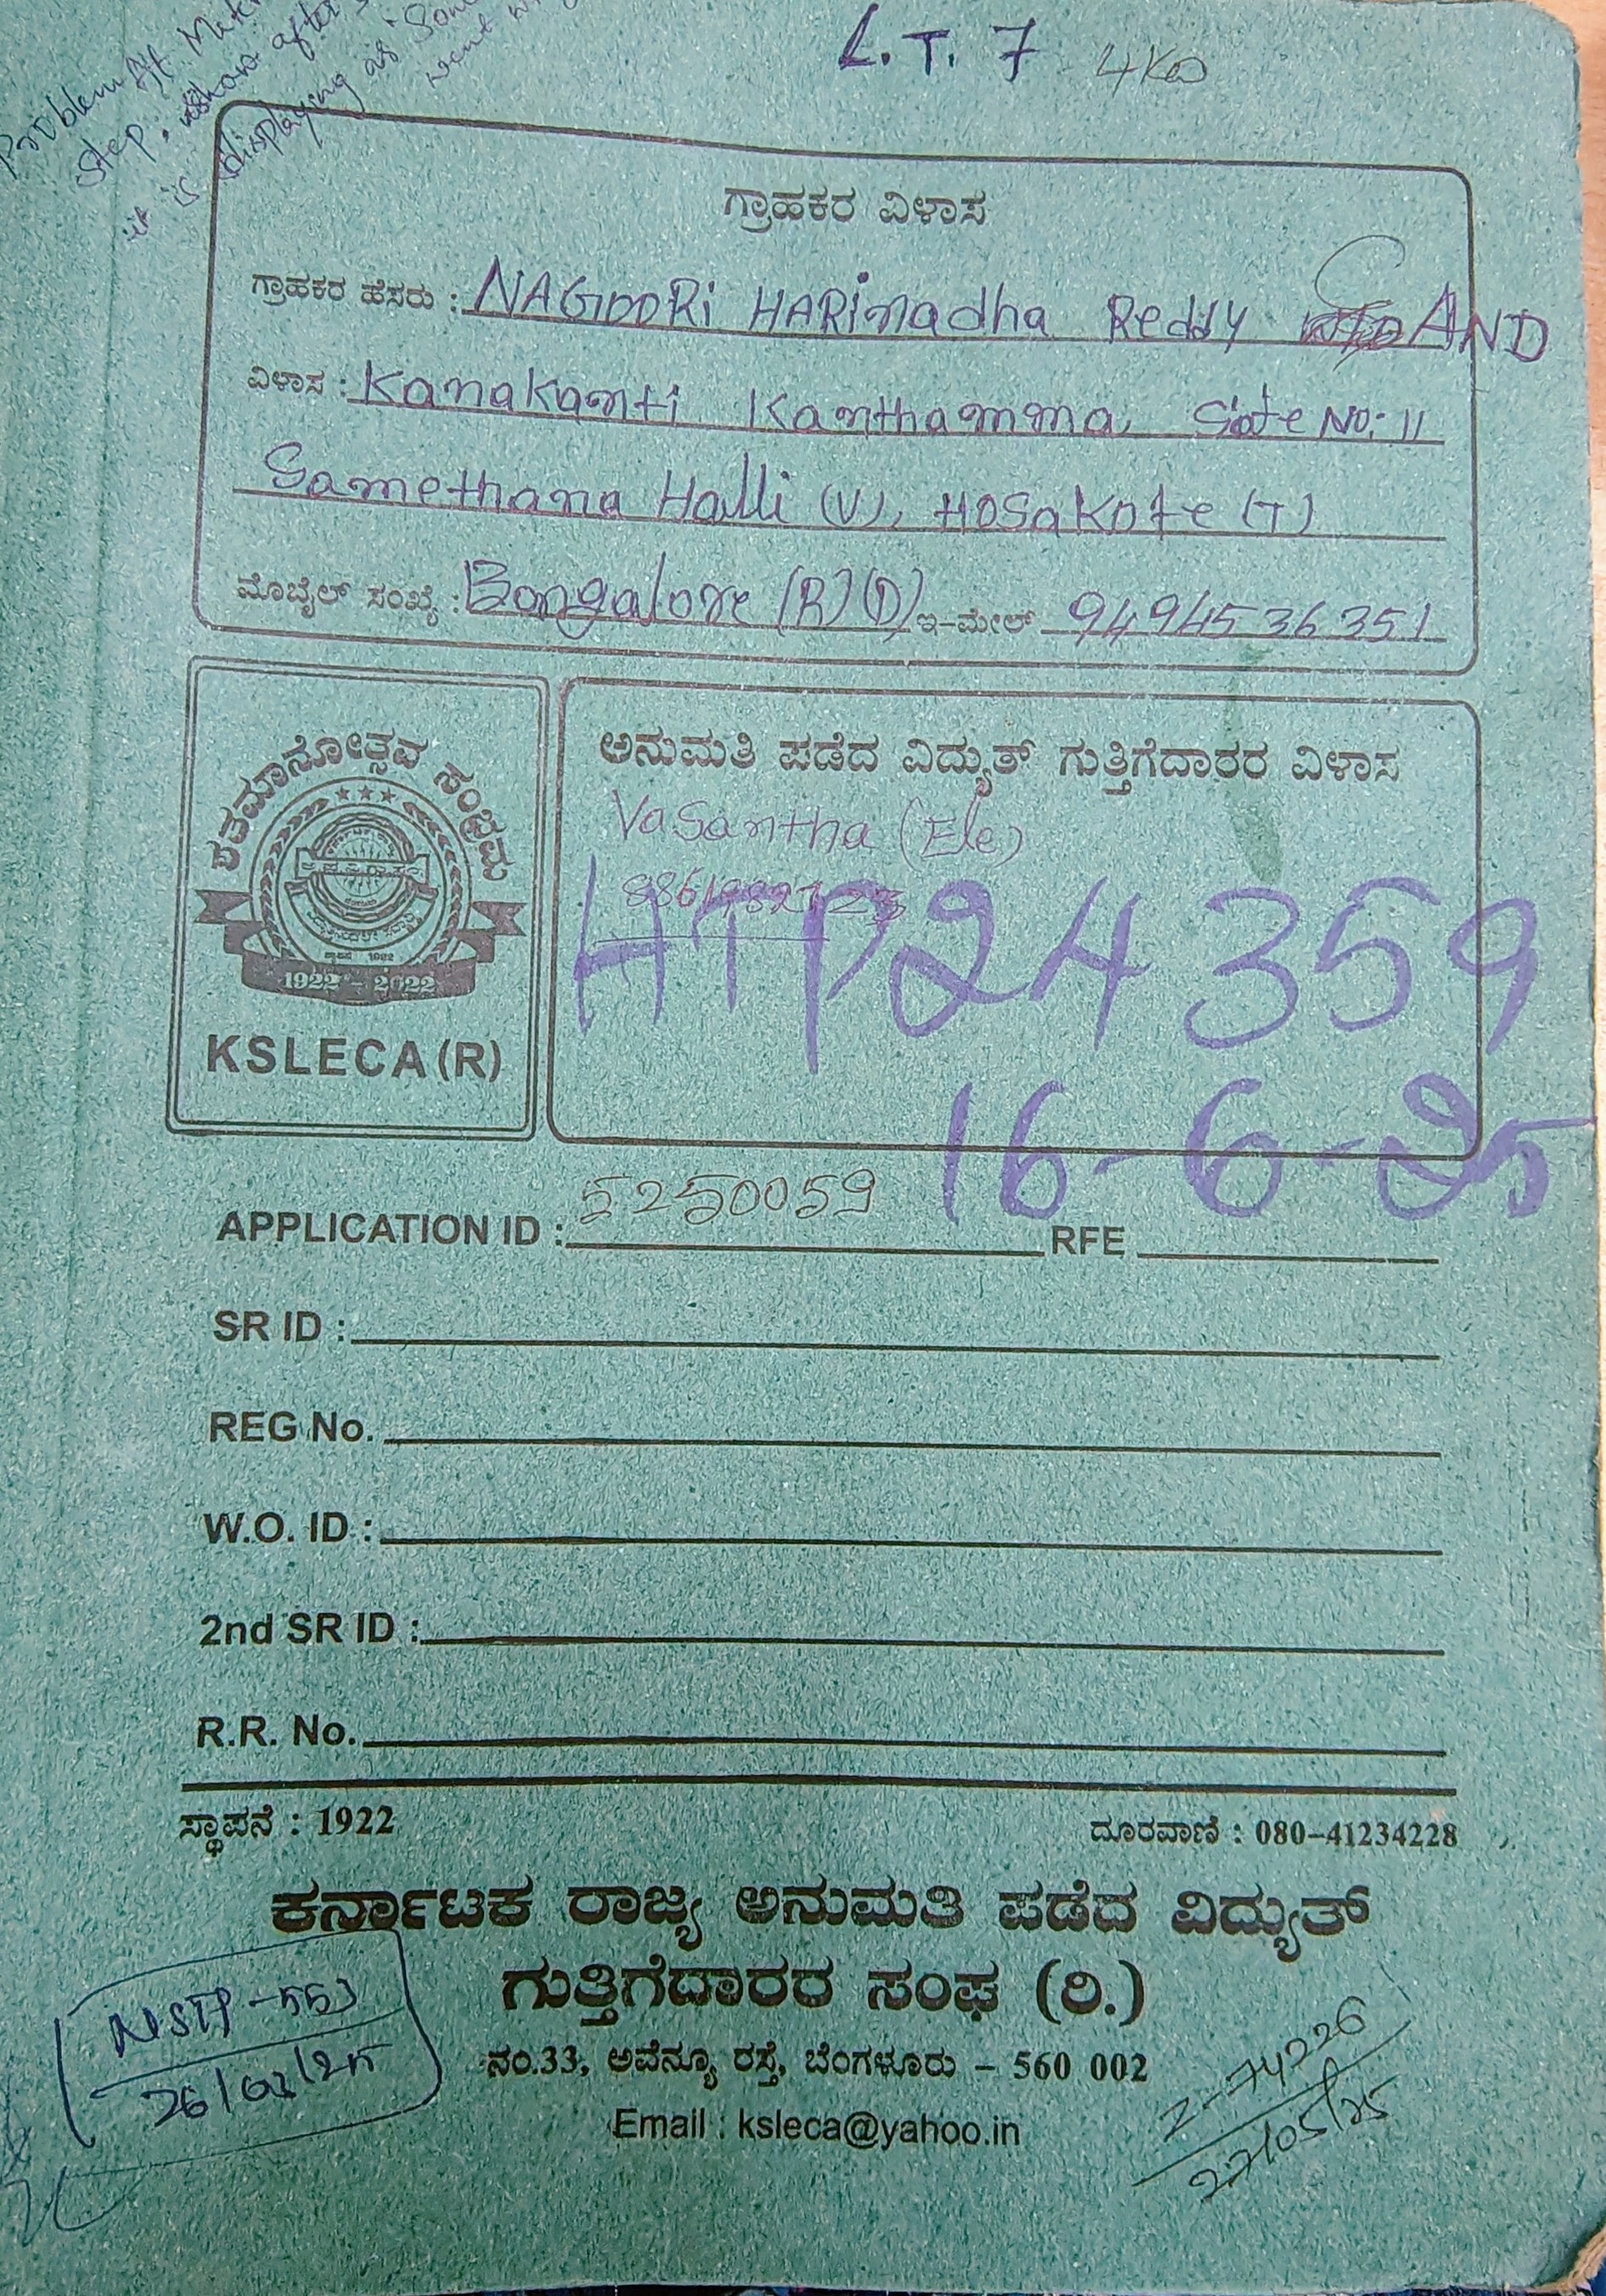 Problem Aft. Mete
step: show after
it is displaying as "Som
went w
L.T. 7 4KW
ಗ್ರಾಹಕರ ವಿಳಾಸ
ಗ್ರಾಹಕರ ಹೆಸರು : NAGOORi HARinadha Reddy AND
ವಿಳಾಸ : Kanakanti Kanthamma, Site No: 11
Samethana Halli (V), HOSaKote (T)
ಮೊಬೈಲ್ ಸಂಖ್ಯೆ : Bangalore (R) (D) ಇ-ಮೇಲ್ 9494536351
ಶತಮಾನೋತ್ಸವ ಸಂಭ್ರಮ
1922 - 2022
KSLECA (R)
ಅನುಮತಿ ಪಡೆದ ವಿದ್ಯುತ್ ಗುತ್ತಿಗೆದಾರರ ವಿಳಾಸ
Vasantha (Ele)
HTP24359
16-6-25
APPLICATION ID : 5250059 RFE
SR ID :
REG No.
W.O. ID :
2nd SR ID :
R.R. No.
ಸ್ಥಾಪನೆ : 1922 ದೂರವಾಣಿ : 080-41234228
ಕರ್ನಾಟಕ ರಾಜ್ಯ ಅನುಮತಿ ಪಡೆದ ವಿದ್ಯುತ್
ಗುತ್ತಿಗೆದಾರರ ಸಂಘ (ರಿ.)
ನಂ.33, ಅವೆನ್ಯೂ ರಸ್ತೆ, ಬೆಂಗಳೂರು - 560 002
Email : ksleca@yahoo.in
Z-74226
27/05/25